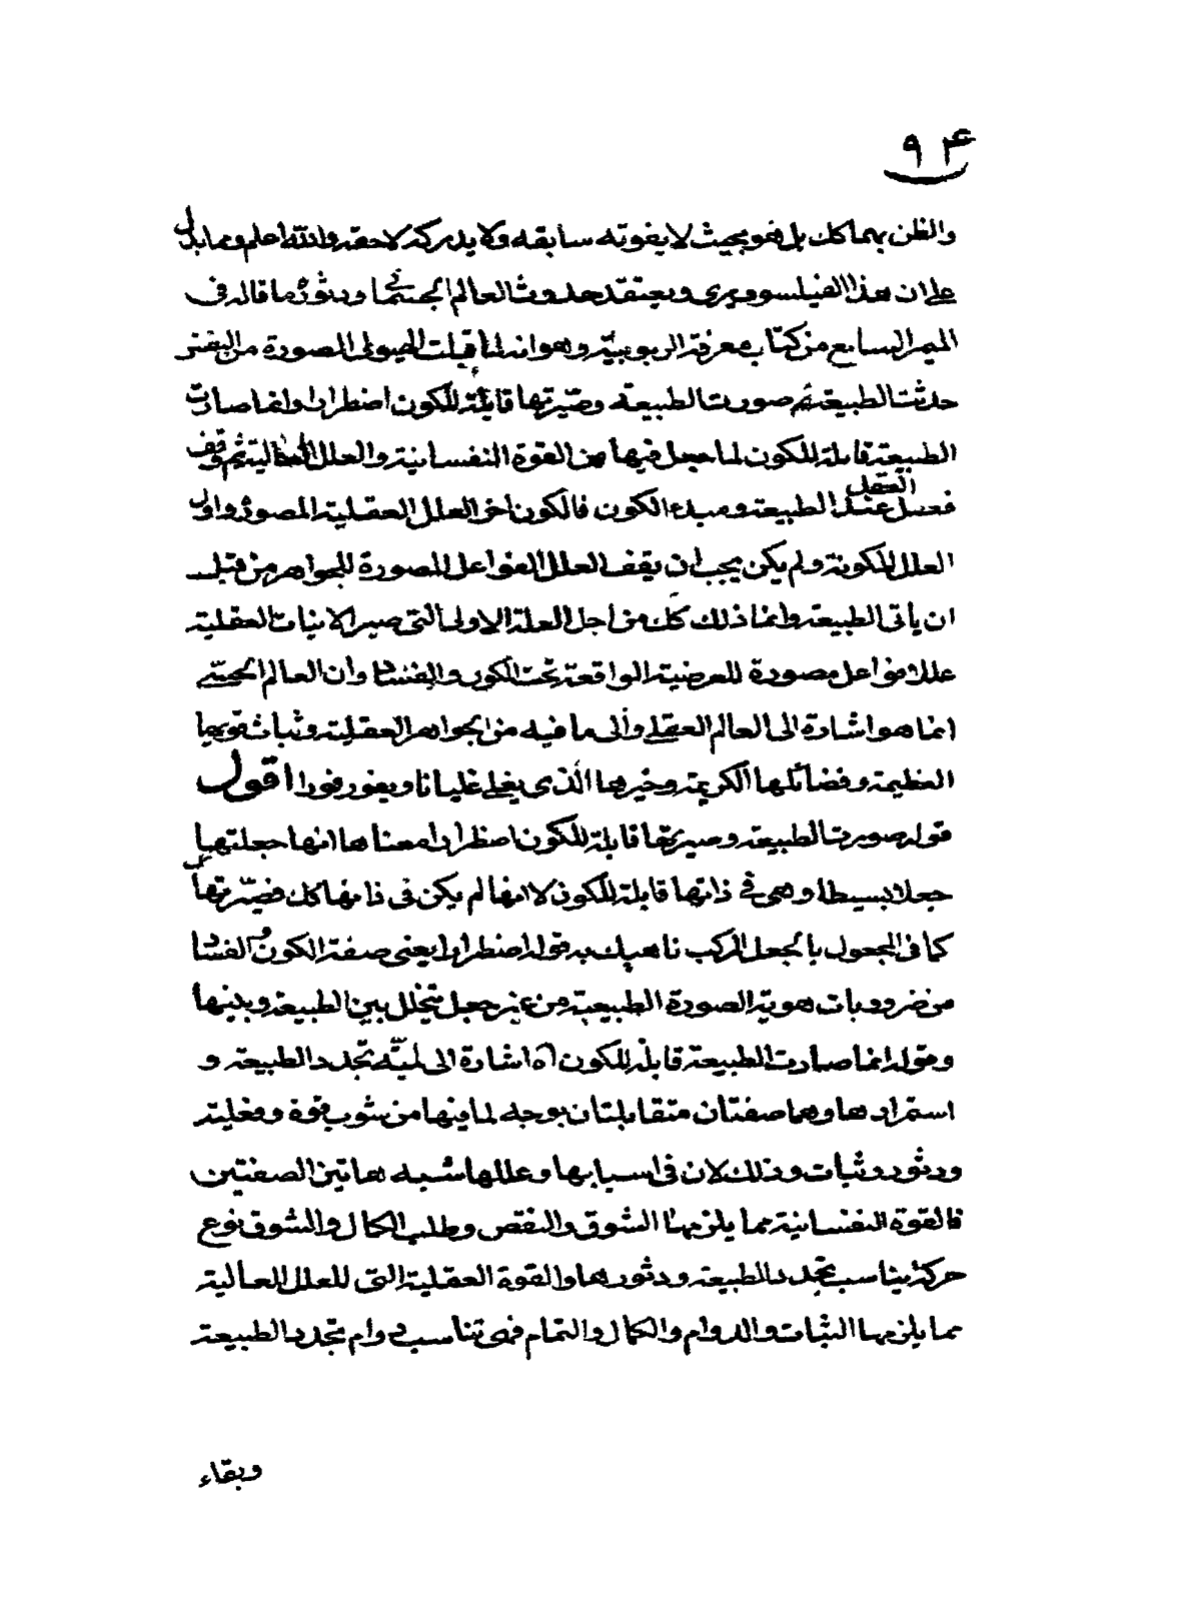 ٩۴
والظن بهما كك بل هو بحيث لا يفوته سابقه ولا يدركه لاحقه والله اعلم ومما يدل
على ان هذا الفيلسوف يرى ويعتقد حدوث العالم الجسمانى ودثوره ما قاله فى
الميمر السابع من كتاب معرفة الربوبية وهو انه لما قبلت الهيولى الصورة من النفس
حدثت الطبيعة ثم صورت الطبيعة وصيرتها قابلة للكون اضطرارا وانما صارت
الطبيعة قابلة للكون لما جعل فيها من القوة النفسانية والعلل العالية ثم وقف
فعل العقل عند الطبيعة ومبدء الكون فالكون اخر العلل العقلية المصورة واول
العلل المكونة ولم يكن يجب ان يقف العلل الفواعل المصورة للجواهر من قبل
ان ياتى الطبيعة وانما ذلك كك من اجل العلة الاولى التى صير الانيات العقلية
عللا فواعل مصورة للعرضية الواقعة تحت الكون والفساد وان العالم الحسى
انما هو اشارة الى العالم العقلى والى ما فيه من الجواهر العقلية وثبات قويها
العظيمة وفضائلها الكريمة وخيرها الذى يغلى غليانا ويفور فورا اقول
قوله صورت الطبيعة وصيرتها قابلة للكون اضطرارا معناها انها جعلتها
جعلا بسيطا وهى فى ذاتها قابلة للكون لا انها لم يكن فى ذاتها كك فصيرتها كك
كما فى المجعول بالجعل المركب ناهيك به قوله اضطرارا يعنى صفة الكون والفساد
من ضروريات هوية الصورة الطبيعية من غير جعل يتخلل بين الطبيعة وبينها
وقوله انما صارت الطبيعة قابلة للكون اه اشارة الى لمية تجدد الطبيعة و
استمرارها وهما صفتان متقابلتان بوجه لما فيها من شوب قوة وفعلية
ودثور وثبات وذلك لان فى اسبابها وعللها شبه هاتين الصفتين
فالقوة النفسانية مما يلزمها الشوق والنقص وطلب الكمال والشوق نوع
حركة يناسب تجدد الطبيعة ودثورها والقوة العقلية التى للعلل العالية
مما يلزمها الثبات والدوام والكمال والتمام فهى تناسب دوام تجدد الطبيعة
وبقاء